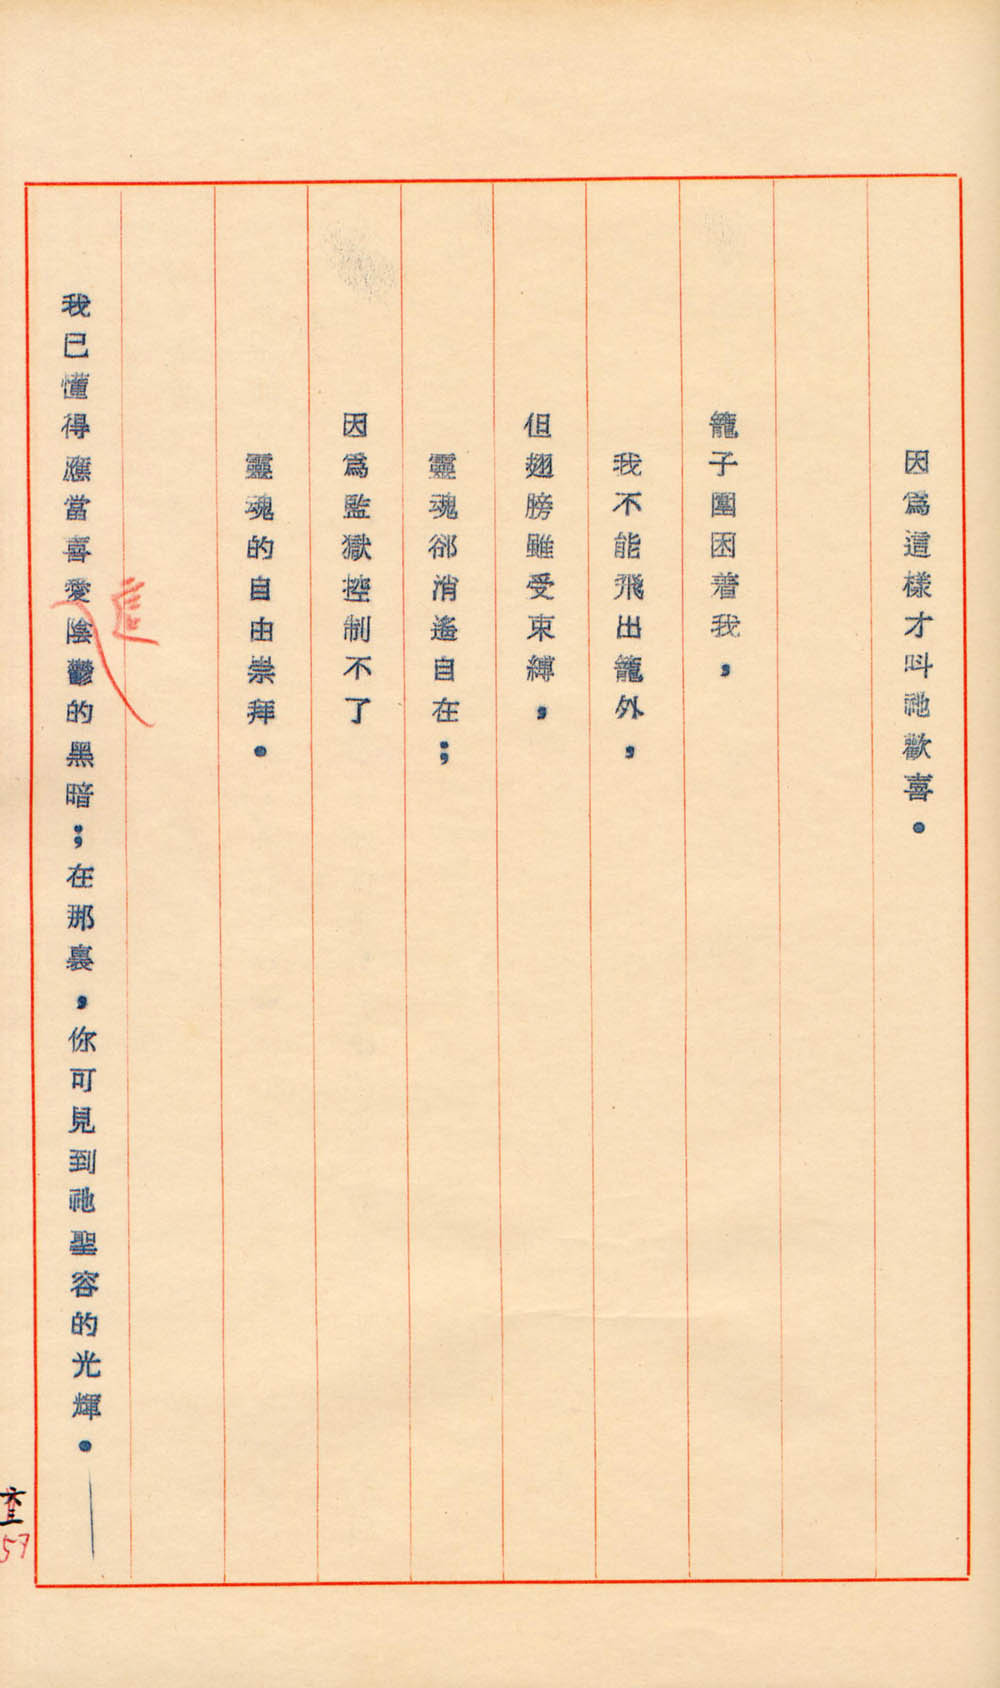 因爲這樣才叫祂歡喜。
籠子圍困着我，
我不能飛出籠外，
但翅膀雖受束縛，
靈魂郤消遙自在；
因爲監獄控制不了
靈魂的自由崇拜。
這
我已懂得應當喜愛陰鬱的黑暗；在那裏，你可見到祂聖容的光輝。—
57